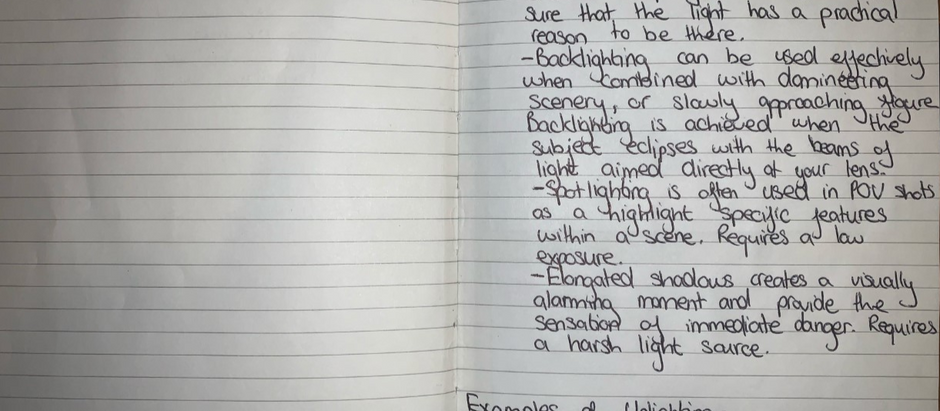 sure that the light has a practical
reason to be there.
-Backlighting can be used effectively
when combined with domineering
scenery, or slowly approaching figure
Backlighting is achieved when the
subject eclipses with the beams of
light aimed directly at your lens.
-Spotlighting is often used in POV shots
as a highlight specific features
within a scene. Requires a low
exposure.
-Elongated shadows creates a visually
alarming moment and provide the
sensation of immediate danger. Requires
a harsh light source.
Examples of Uplighting